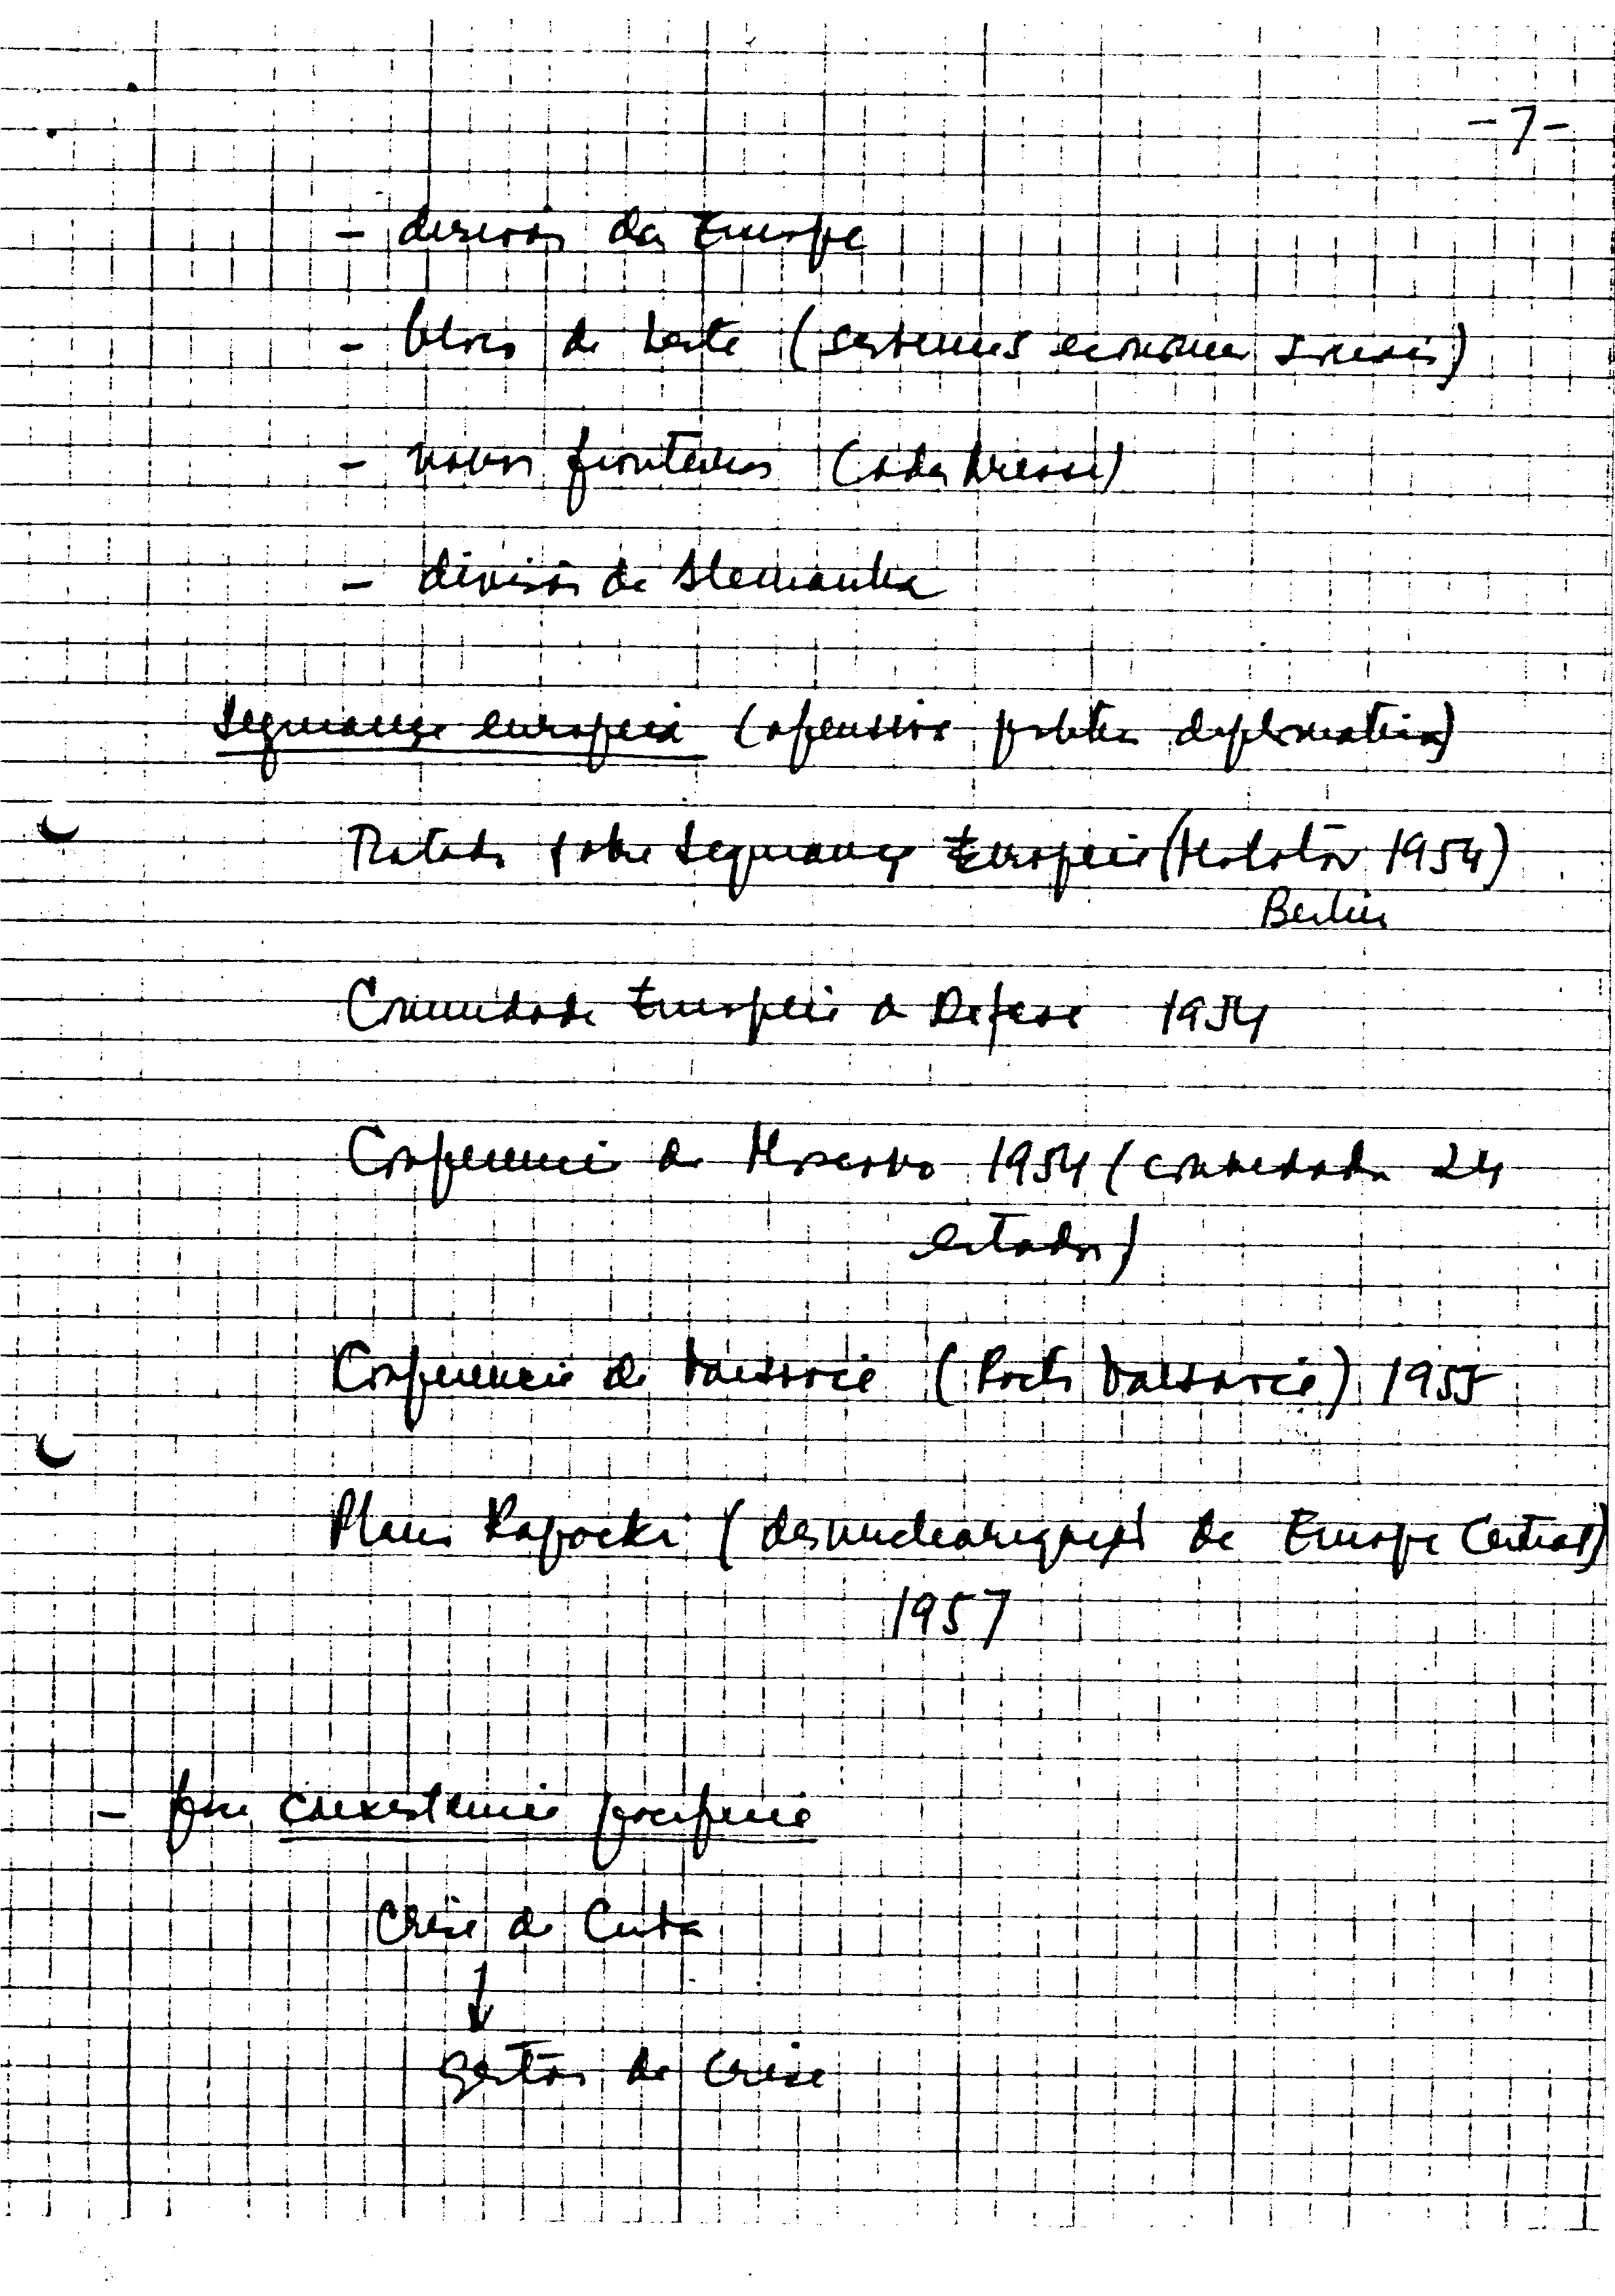 - 7 -
- divisão da Europa
- bloco de Leste (sistemas económicos sociais)
- novas fronteiras (Oder Neisse)
- divisão da Alemanha
Segurança europeia (ofensiva política diplomática)
Tratado sobre Segurança Europeia (Molotov 1954)
Berlim
Comunidade Europeia de Defesa 1954
Conferência de Moscovo 1954 (convidados 24
estados)
Conferência de Varsóvia (Pacto Varsóvia) 1955
Plano Rapacki (desnuclearização da Europa Central)
1957
- fase coexistência pacífica
Crise de Cuba
↓
gestão de crise